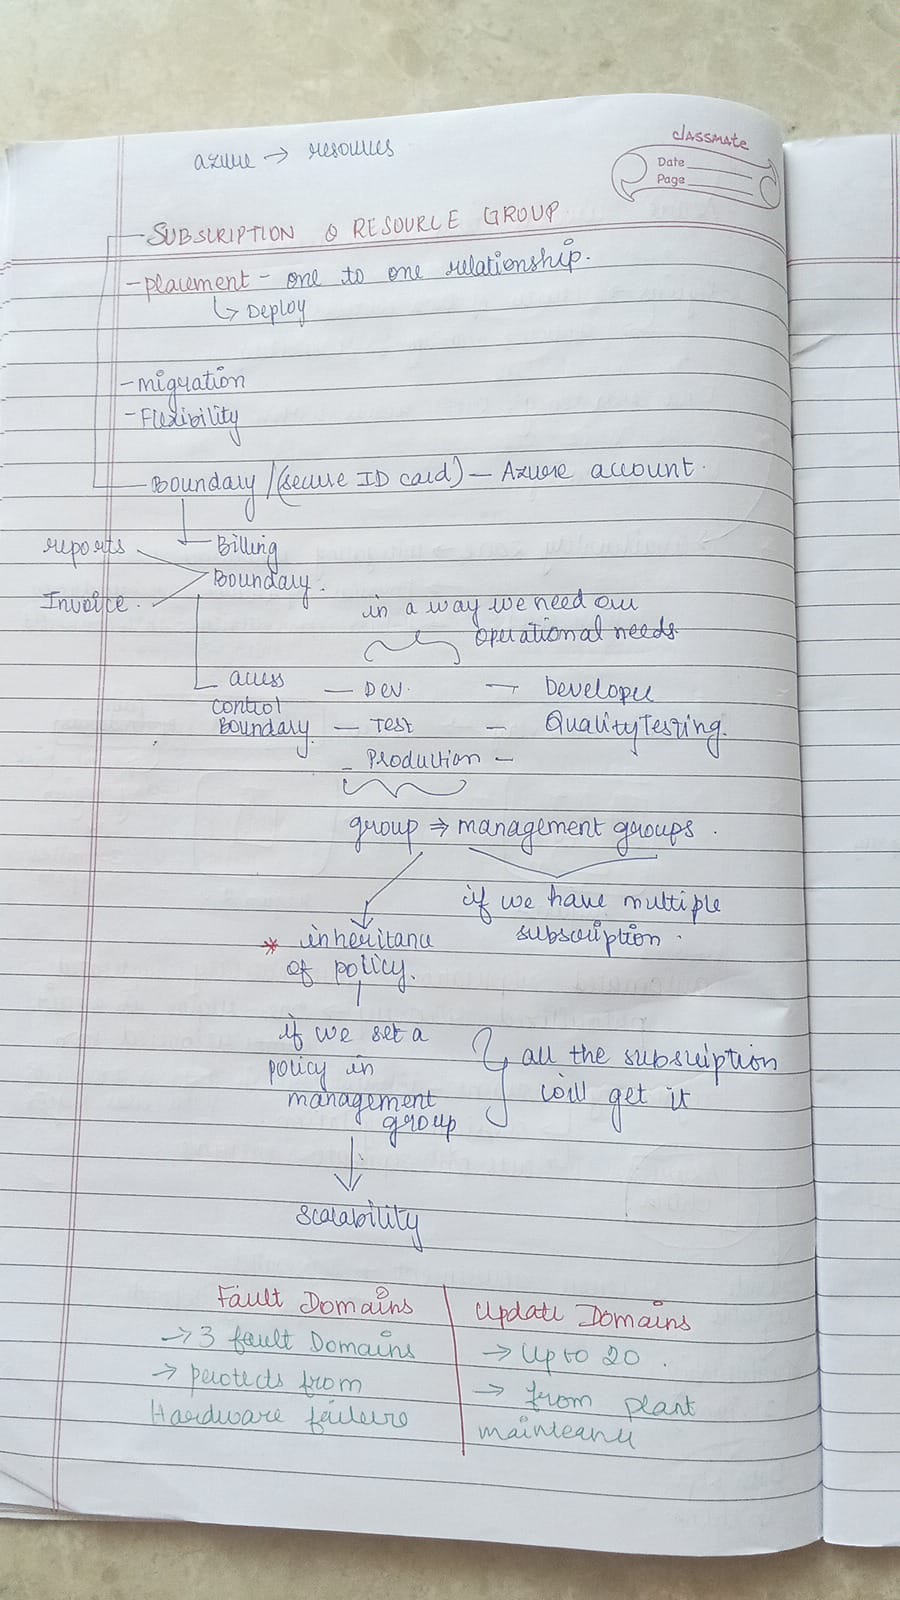 classmate
Date
Page
azure → resources
- SUBSCRIPTION & RESOURCE GROUP
- placement - one to one relationship.
↳ Deploy
- migration
- Flexibility
Boundary / (secure ID card) - Azure account.
reports
- Billing
Boundary.
Invoice.
in a way we need our
operational needs
access
control
Boundary.
- Dev. - Developer
- Test - Quality Testing.
- Production -
group ⇒ management groups.
if we have multiple
subscription.
* inheritance
of policy.
if we set a
policy in
management
group
all the subscription
will get it
scalability
Fault Domains
→ 3 fault Domains
→ protects from
Hardware failure
Update Domains
→ Up to 20.
→ from plant